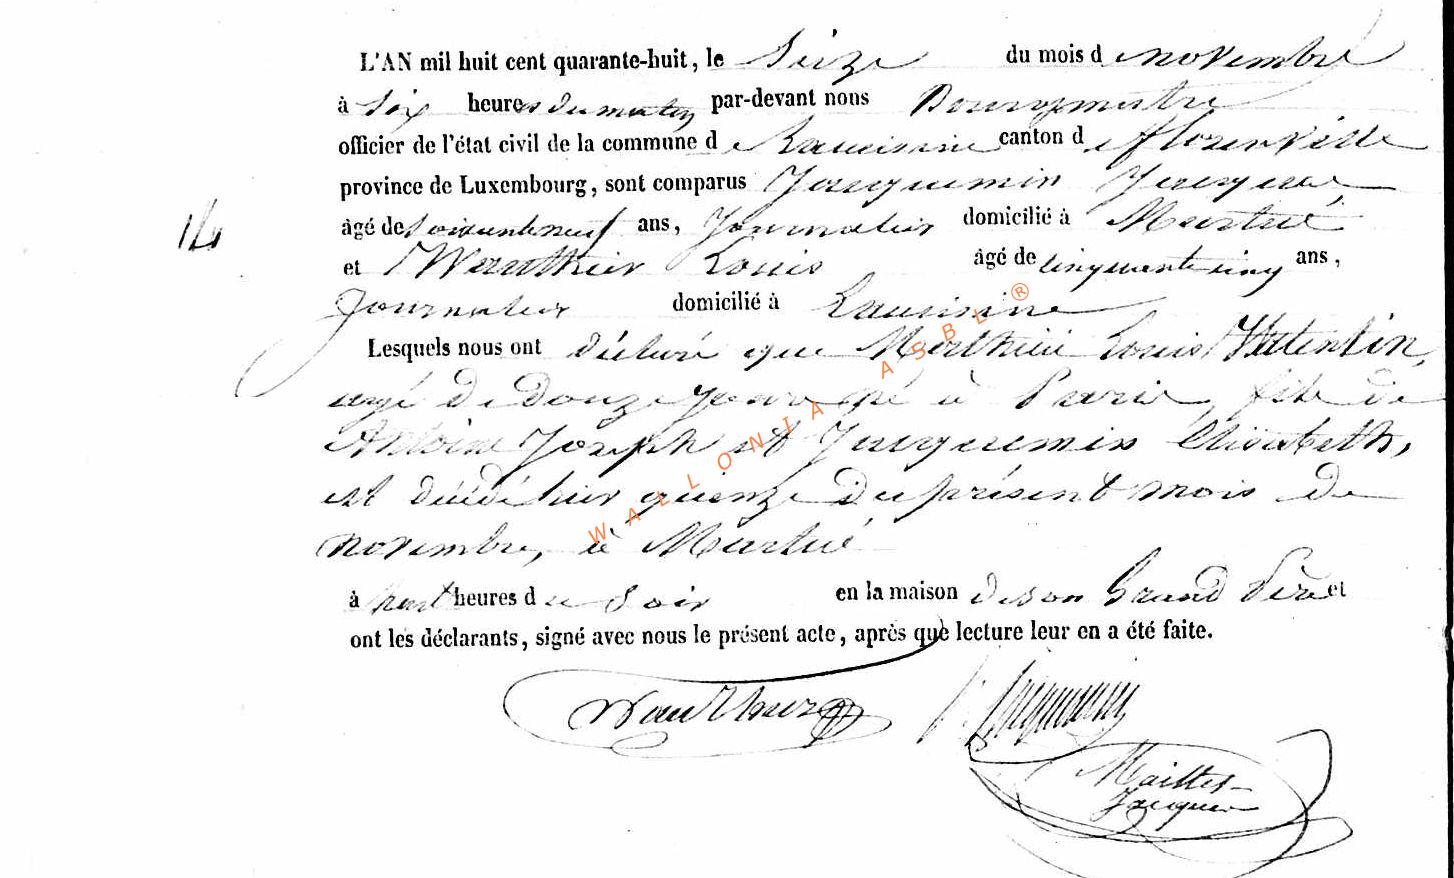 L'AN mil huit cent quarante-huit, le Seize du mois de novembre
à Six heures du matin, par-devant nous Bourgmestre
officier de l'état civil de la commune de Lacuisine canton de florenville
province de Luxembourg, sont comparus Jacquemin Jacques
âgé de Soixante neuf ans, Journalier domicilié à Martué
14
et Wauthier Louis âgé de cinquante cinq ans,
Journalier domicilié à Lacuisine
Lesquels nous ont déclaré que Mathieu Louis Valentin,
agé de Douze Jours né à Paris, fils de
Antoine Joseph et Jacquemin Elisabeth,
est décédé hier quinze du présent mois de
novembre, à Martué
à huit heures du Soir en la maison de son Grand Père et
ont les déclarants, signé avec nous le présent acte, après que lecture leur en a été faite.
WALLONIA ASBL ®
Wauthier Jacquemin
Jacques